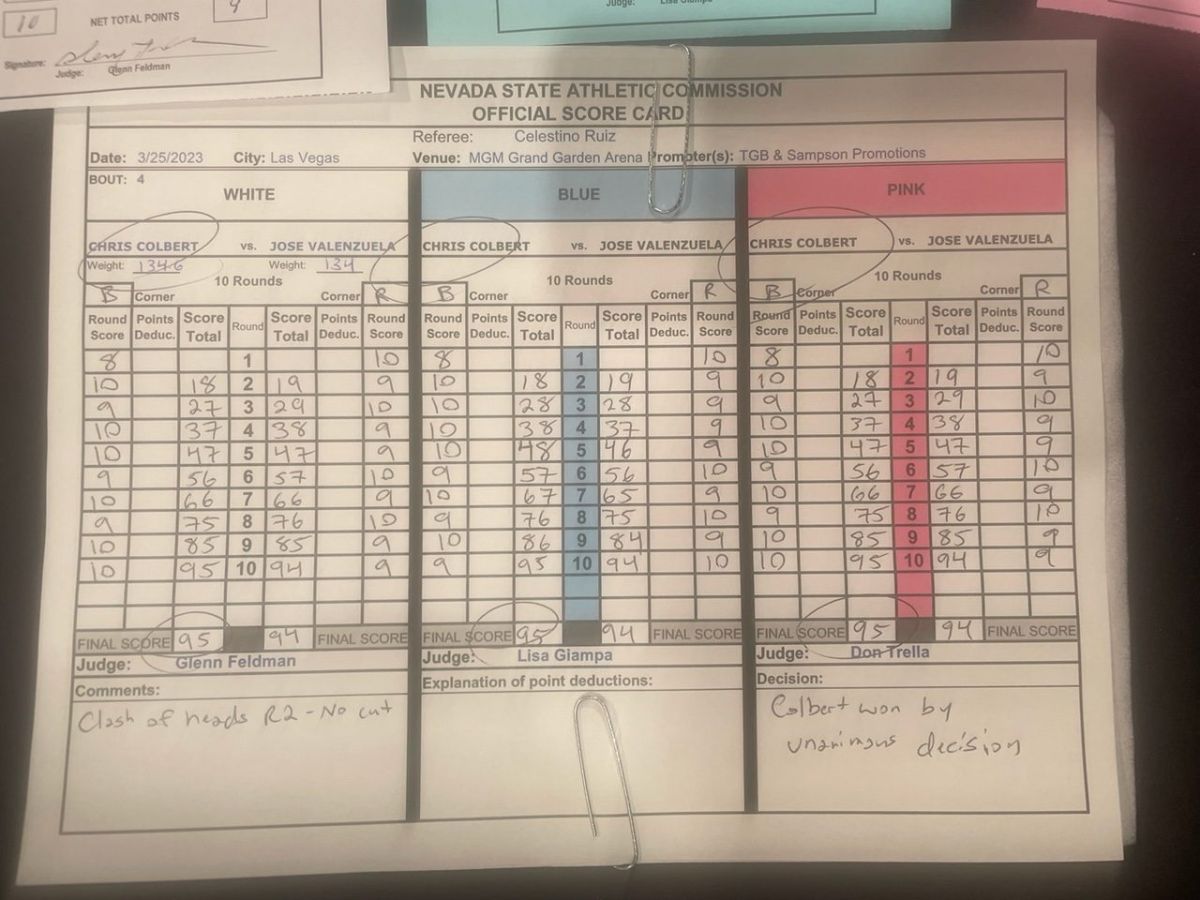 10 NET TOTAL POINTS 9
Signature:
Judge: Glenn Feldman
Judge: Lisa Giampa
NEVADA STATE ATHLETIC COMMISSION
OFFICIAL SCORE CARD
Referee: Celestino Ruiz
Date: 3/25/2023 City: Las Vegas Venue: MGM Grand Garden Arena Promoter(s): TGB & Sampson Promotions
BOUT: 4
WHITE BLUE PINK
CHRIS COLBERT vs. JOSE VALENZUELA CHRIS COLBERT vs. JOSE VALENZUELA CHRIS COLBERT vs. JOSE VALENZUELA
Weight: 134.6 Weight: 134
10 Rounds 10 Rounds 10 Rounds
B Corner Corner R B Corner Corner R B Corner Corner R
Round Points Score Round Score Points Round Round Points Score Round Score Points Round Round Points Score Round Score Points Round
Score Deduc. Total Total Deduc. Score Score Deduc. Total Total Deduc. Score Score Deduc. Total Total Deduc. Score
8 1 10 8 1 10 8 1 10
10 18 2 19 9 10 18 2 19 9 10 18 2 19 9
9 27 3 29 10 10 28 3 28 9 9 27 3 29 10
10 37 4 38 9 10 38 4 37 9 10 37 4 38 9
10 47 5 47 9 10 48 5 46 9 10 47 5 47 9
9 56 6 57 10 9 57 6 56 10 9 56 6 57 10
10 66 7 66 9 10 67 7 65 9 10 66 7 66 9
9 75 8 76 10 9 76 8 75 10 9 75 8 76 10
10 85 9 85 9 10 86 9 84 9 10 85 9 85 9
10 95 10 94 9 9 95 10 94 10 10 95 10 94 9
FINAL SCORE 95 94 FINAL SCORE FINAL SCORE 95 94 FINAL SCORE FINAL SCORE 95 94 FINAL SCORE
Judge: Glenn Feldman Judge: Lisa Giampa Judge: Don Trella
Comments: Explanation of point deductions: Decision:
Clash of heads R2 - No cut
Colbert won by
unanimous decision